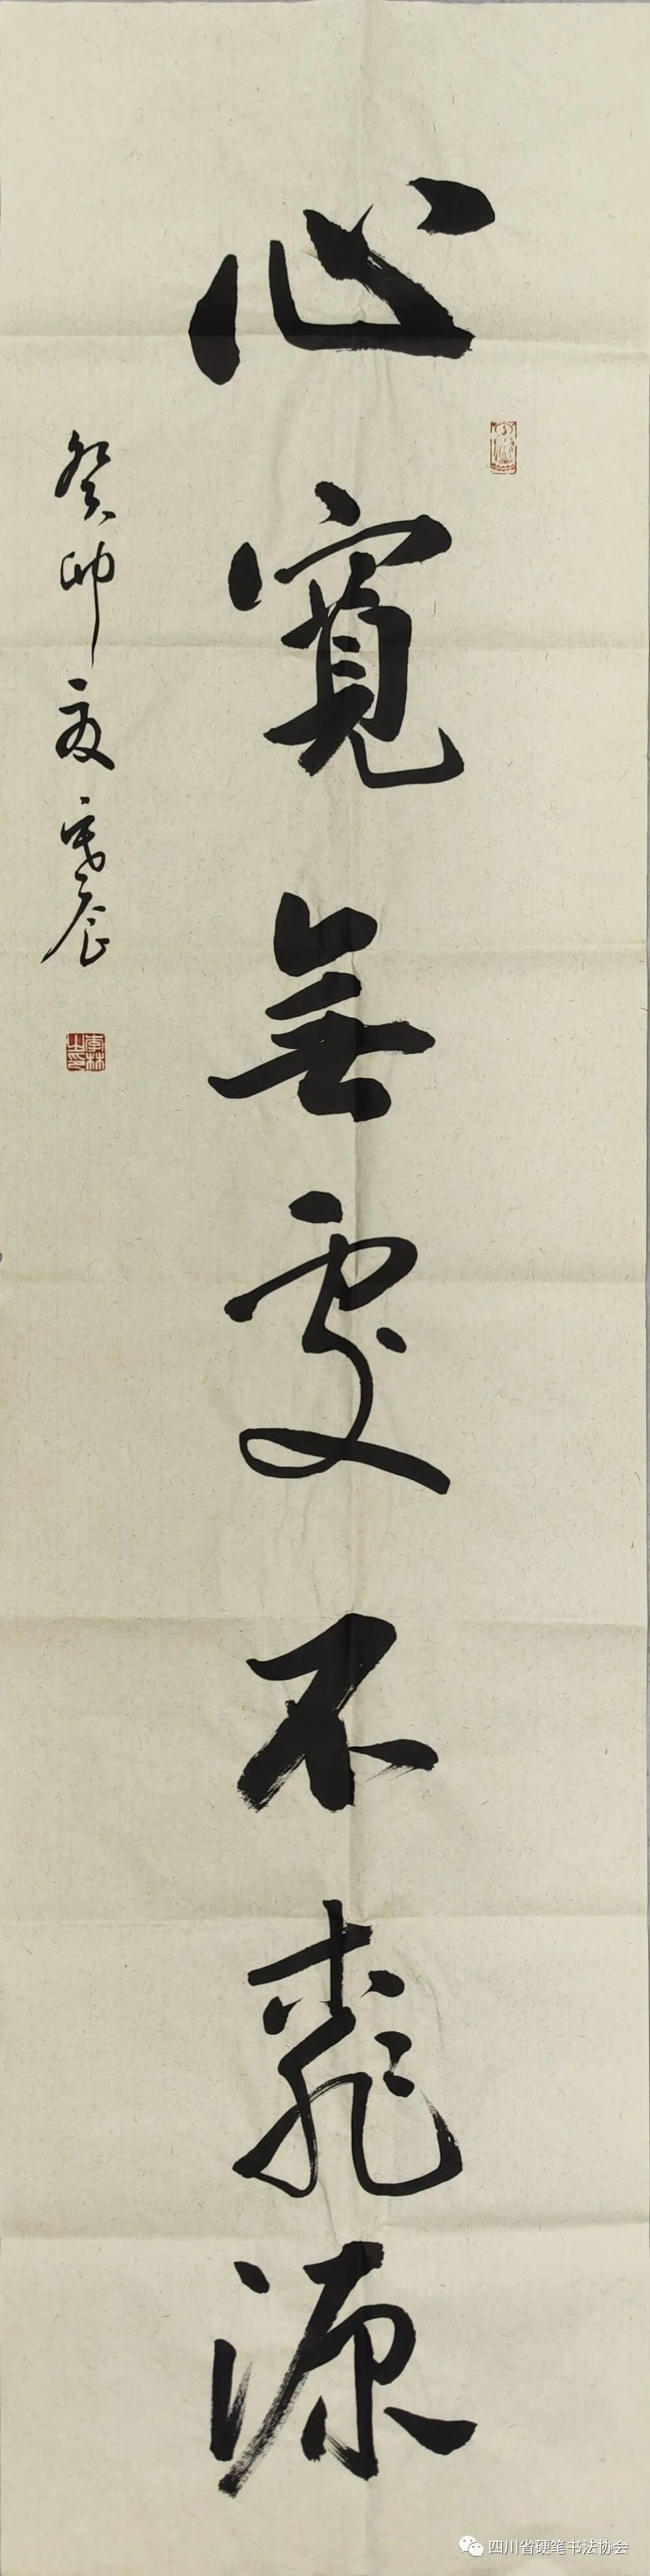 心寬無處不桃源
癸卯夏
李林之印
四川省硬笔书法协会